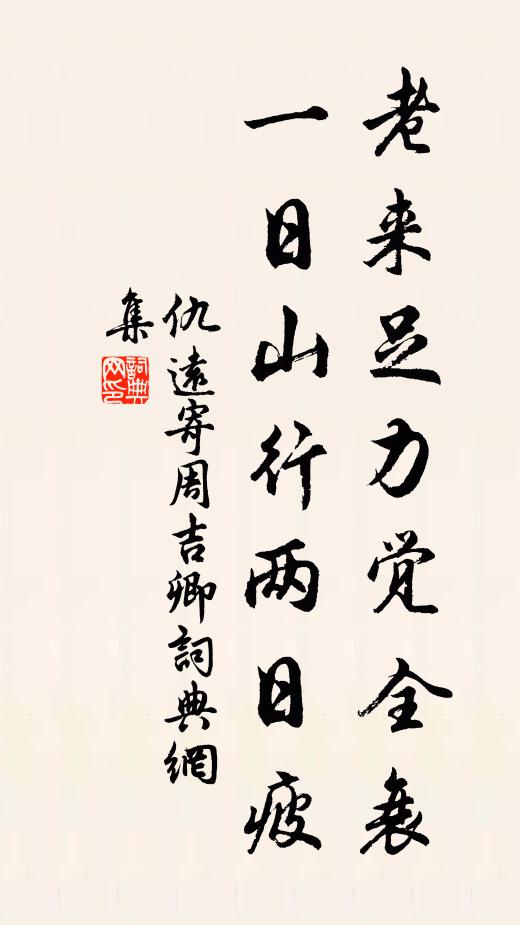 老来足力觉全衰
一日山行两日疲
仇遠寄周吉卿詞典網
集
詞典網印